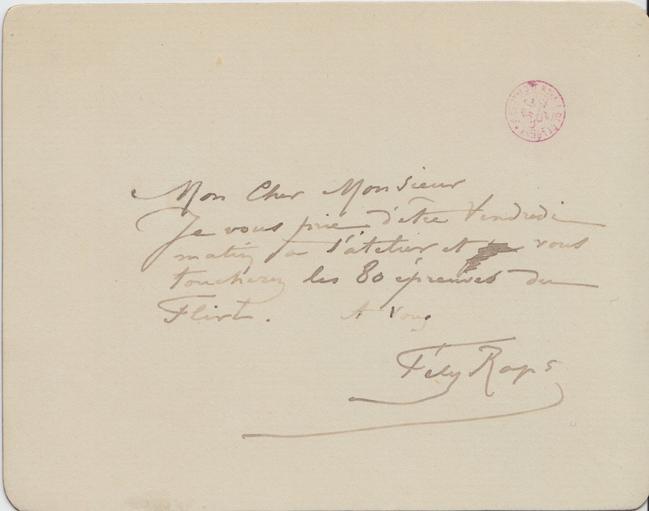 Mon Cher Monsieur
Je vous prie d'être Vendredi
matin à l'atelier et vous
toucherez les 80 épreuves du
Flirt. A Vous
Fély Rops